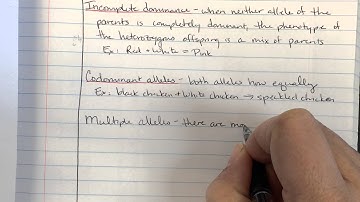 Incomplete dominance - when neither allele of the
parents is completely dominant, the phenotype of
the heterozygous offspring is a mix of parents
Ex: Red + White = Pink
Codominant alleles - both alleles how equally
Ex: black chicken + white chicken → speckled chicken
Multiple alleles - there are mo